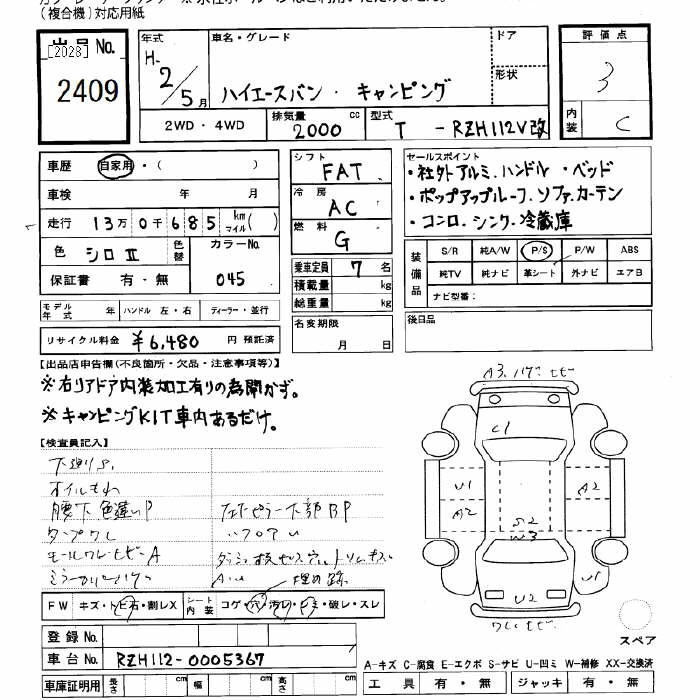 (複合機)対応用紙
出品No. [2028]
2409
年式 H- 2/5月
車名・グレード ハイエースバン・キャンピング
ドア
形状
評価点 3
内装 C
2WD・4WD
排気量 2000 cc
型式 T - RZH112V改
車歴 自家用・( )
車検 年 月
走行 13万0千685 km マイル( )
色 シロⅡ 色替 カラーNo. 045
保証書 有・無
モデル年式 年 ハンドル 左・右 ディーラー・並行
リサイクル料金 ¥6,480 円 預託済
シフト FAT
冷房 AC
燃料 G
乗車定員 7 名
積載量 kg
総重量 kg
名変期限 月 日
セールスポイント
・社外アルミ.ハンドル・ベッド
・ポップアップルーフ.ソファ.カーテン
・コンロ.シンク.冷蔵庫
装備品 S/R 純A/W P/S P/W ABS
純TV 純ナビ 革シート 外ナビ エアB
ナビ型番:
後日品
【出品店申告欄(不良箇所・欠品・注意事項等)】
※右リアドア内装加工有りの為開かず。
※キャンピングKIT車内あるだけ。
【検査員記入】
下廻りS.
オイルもれ
腰下色違いP
モールワレヒビA
FW キズ・トビ石・割レX シート内装 コゲ・穴・汚レ・シミ・破レ・スレ
登録No.
車台No. RZH112-0005367
車庫証明用 長さ cm 幅 cm 高さ cm
C1
U1
A2
A2
S2
W3
U2
U1
スペア
A-キズ C-腐食 E-エクボ S-サビ U-凹ミ W-補修 XX-交換済
工具 有・無 ジャッキ 有・無